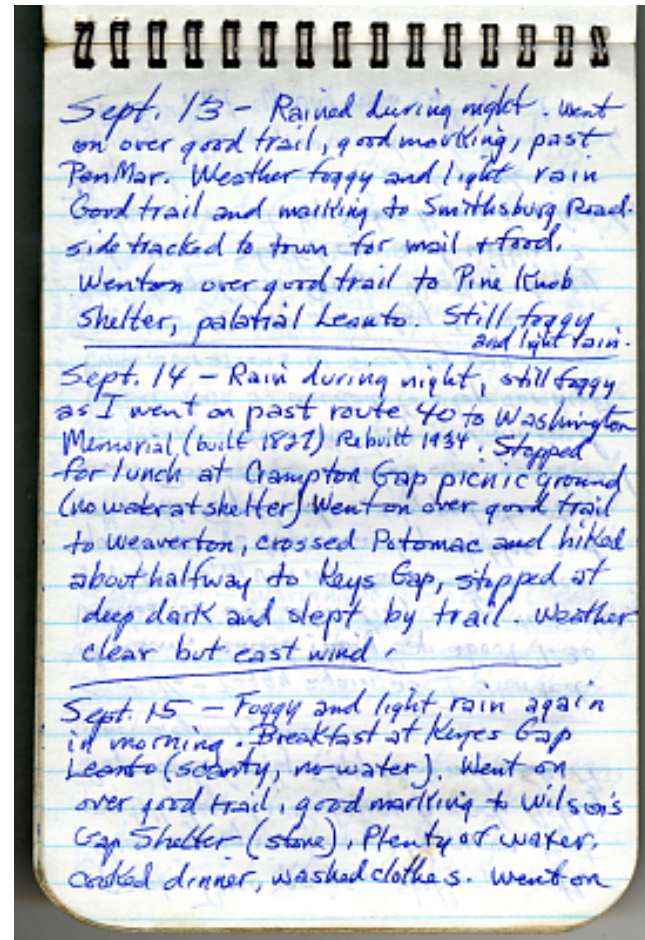 Sept. 13 - Rained during night. Went
on over good trail, good marking, past
PenMar. Weather foggy and light rain
Good trail and marking to Smithsburg Road.
side tracked to town for mail + food.
Went on over good trail to Pine Knob
Shelter, palatial Leanto. Still foggy
and light rain.
Sept. 14 - Rain during night, still foggy
as I went on past route 40 to Washington
Memorial, (built 1827) Rebuilt 1934. Stopped
for lunch at Crampton Gap picnic ground
(no water at shelter) Went on over good trail
to Weaverton, crossed Potomac and hiked
about halfway to Keys Gap, stopped at
deep dark and slept by trail. Weather
clear but east wind.
Sept. 15 - Foggy and light rain again
in morning. Breakfast at Keyes Gap
Leanto (scanty, no water). Went on
over good trail, good marking to Wilson's
Gap Shelter (stone), Plenty of water,
cooked dinner, washed clothes. Went on